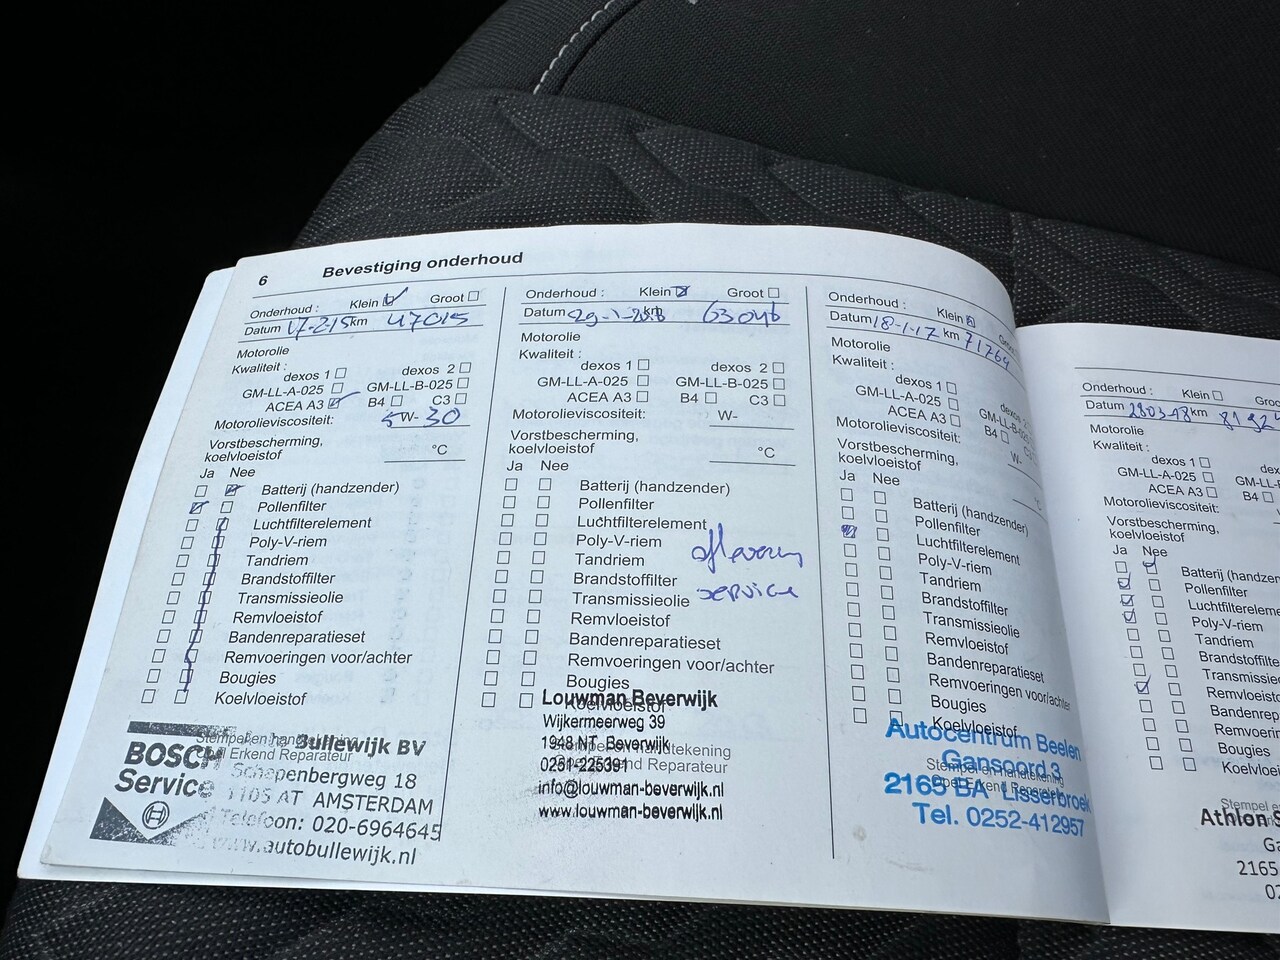 6 Bevestiging onderhoud
Onderhoud : Klein Groot
Datum 17-2-15 km 47015
Motorolie
Kwaliteit :
dexos 1 dexos 2
GM-LL-A-025 GM-LL-B-025
ACEA A3 B4 C3
Motorolieviscositeit: 5 W- 30
Vorstbescherming,
koelvloeistof °C
Ja Nee
Batterij (handzender)
Pollenfilter
Luchtfilterelement
Poly-V-riem
Tandriem
Brandstoffilter
Transmissieolie
Remvloeistof
Bandenreparatieset
Remvoeringen voor/achter
Bougies
Koelvloeistof
Stempel en handtekening
Erkend Reparateur
BOSCH Service
Bullewijk BV
Schepenbergweg 18
1105 AT AMSTERDAM
Telefoon: 020-6964645
www.autobullewijk.nl
Onderhoud : Klein Groot
Datum km 63046
Motorolie
Kwaliteit :
dexos 1 dexos 2
GM-LL-A-025 GM-LL-B-025
ACEA A3 B4 C3
Motorolieviscositeit: W-
Vorstbescherming,
koelvloeistof °C
Ja Nee
Batterij (handzender)
Pollenfilter
Luchtfilterelement
Poly-V-riem
Tandriem
Brandstoffilter
Transmissieolie
Remvloeistof
Bandenreparatieset
Remvoeringen voor/achter
Bougies
Koelvloeistof
aflevering
service
Louwman Beverwijk
Wijkermeerweg 39
1948 NT Beverwijk
0251-225391
info@louwman-beverwijk.nl
www.louwman-beverwijk.nl
Stempel en handtekening
Erkend Reparateur
Onderhoud : Klein
Datum 18-1-17 km 71764
Motorolie
Kwaliteit :
dexos 1
GM-LL-A-025
ACEA A3 B4
Motorolieviscositeit: W-
Vorstbescherming,
koelvloeistof
Ja Nee
Batterij (handzender)
Pollenfilter
Luchtfilterelement
Poly-V-riem
Tandriem
Brandstoffilter
Transmissieolie
Remvloeistof
Bandenreparatieset
Remvoeringen voor/achter
Bougies
Koelvloeistof
Stempel en handtekening
Autocentrum Beelen
Gansoord 3
2165 BA Lisserbroek
Tel. 0252-412957
Onderhoud : Klein
Datum km
Motorolie
Kwaliteit :
dexos 1
GM-LL-A-025
ACEA A3 B4
Motorolieviscositeit:
Vorstbescherming,
koelvloeistof
Ja Nee
Batterij (handzen
Pollenfilter
Luchtfiltereleme
Poly-V-riem
Tandriem
Brandstoffilte
Transmissie
Remvloeisto
Bandenrep
Remvoerin
Bougies
Koelvloei
Stempel e
Athlon S
2165